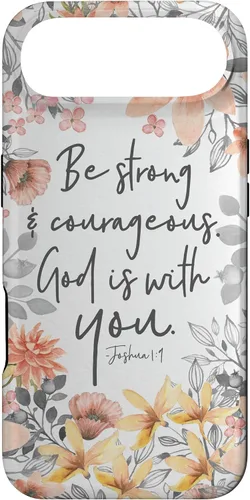 Be strong
& courageous.
God is with
you.
-Joshua 1:9